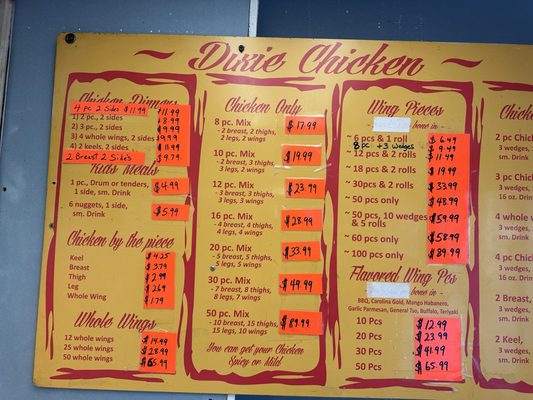 Dixie Chicken
Chicken Dinners
4 pc 2 sides $11.99
1) 2 pc., 2 sides
2) 3 pc., 2 sides $9.99
3) 4 whole wings, 2 sides $9.99
4) 2 keels, 2 sides $11.99
2 Breast 2 Sides $9.79
Kids Meals
1 pc., Drum or tenders, $4.99
1 side, sm. Drink
6 nuggets, 1 side, $5.99
sm. Drink
Chicken by the piece
Keel 4.25
Breast 3.79
Thigh 2.99
Leg 2.69
Whole Wing 1.79
Whole Wings
12 whole wings $14.99
25 whole wings $28.99
50 whole wings
Chicken Only
8 pc. Mix $17.99
- 2 breast, 2 thighs,
2 legs, 2 wings
10 pc. Mix $19.99
- 3 breast, 3 thighs,
2 legs, 2 wings
12 pc. Mix $23.99
- 3 breast, 3 thighs,
3 legs, 3 wings
16 pc. Mix $28.99
- 4 breast, 4 thighs,
4 legs, 4 wings
20 pc. Mix $33.99
- 5 breast, 5 thighs,
5 legs, 5 wings
30 pc. Mix $49.99
- 7 breast, 8 thighs,
8 legs, 7 wings
50 pc. Mix $89.99
- 10 breast, 15 thighs,
15 legs, 10 wings
You can get your Chicken
Spicy or Mild
Wing Pieces
bone in -
~ 6 pcs & 1 roll $6.49
8 pc +3 wedges $9.49
~ 12 pcs & 2 rolls $11.99
~ 18 pcs & 2 rolls $19.99
~ 30pcs & 2 rolls $33.99
~ 50 pcs only $48.99
~ 50 pcs, 10 wedges $59.99
& 5 rolls
~ 60 pcs only $58.99
~ 100 pcs only $89.99
Flavored Wing Pcs
bone in -
BBQ, Carolina Gold, Mango Habanero,
Garlic Parmesan, General Tso, Buffalo, Teriyaki
10 Pcs $12.99
20 Pcs $23.99
30 Pcs $41.99
50 Pcs $65.99
Chicken
2 pc Chick
3 wedges,
sm. Drink
3 pc Chick
3 wedges,
16 oz.
4 whole w
3 wedges,
sm. Drink
4 pc Chick
3 wedges,
sm. Drink
2 Breast,
3 wedges,
sm. Drink
2 Keel,
3 wedges,
sm. Drink